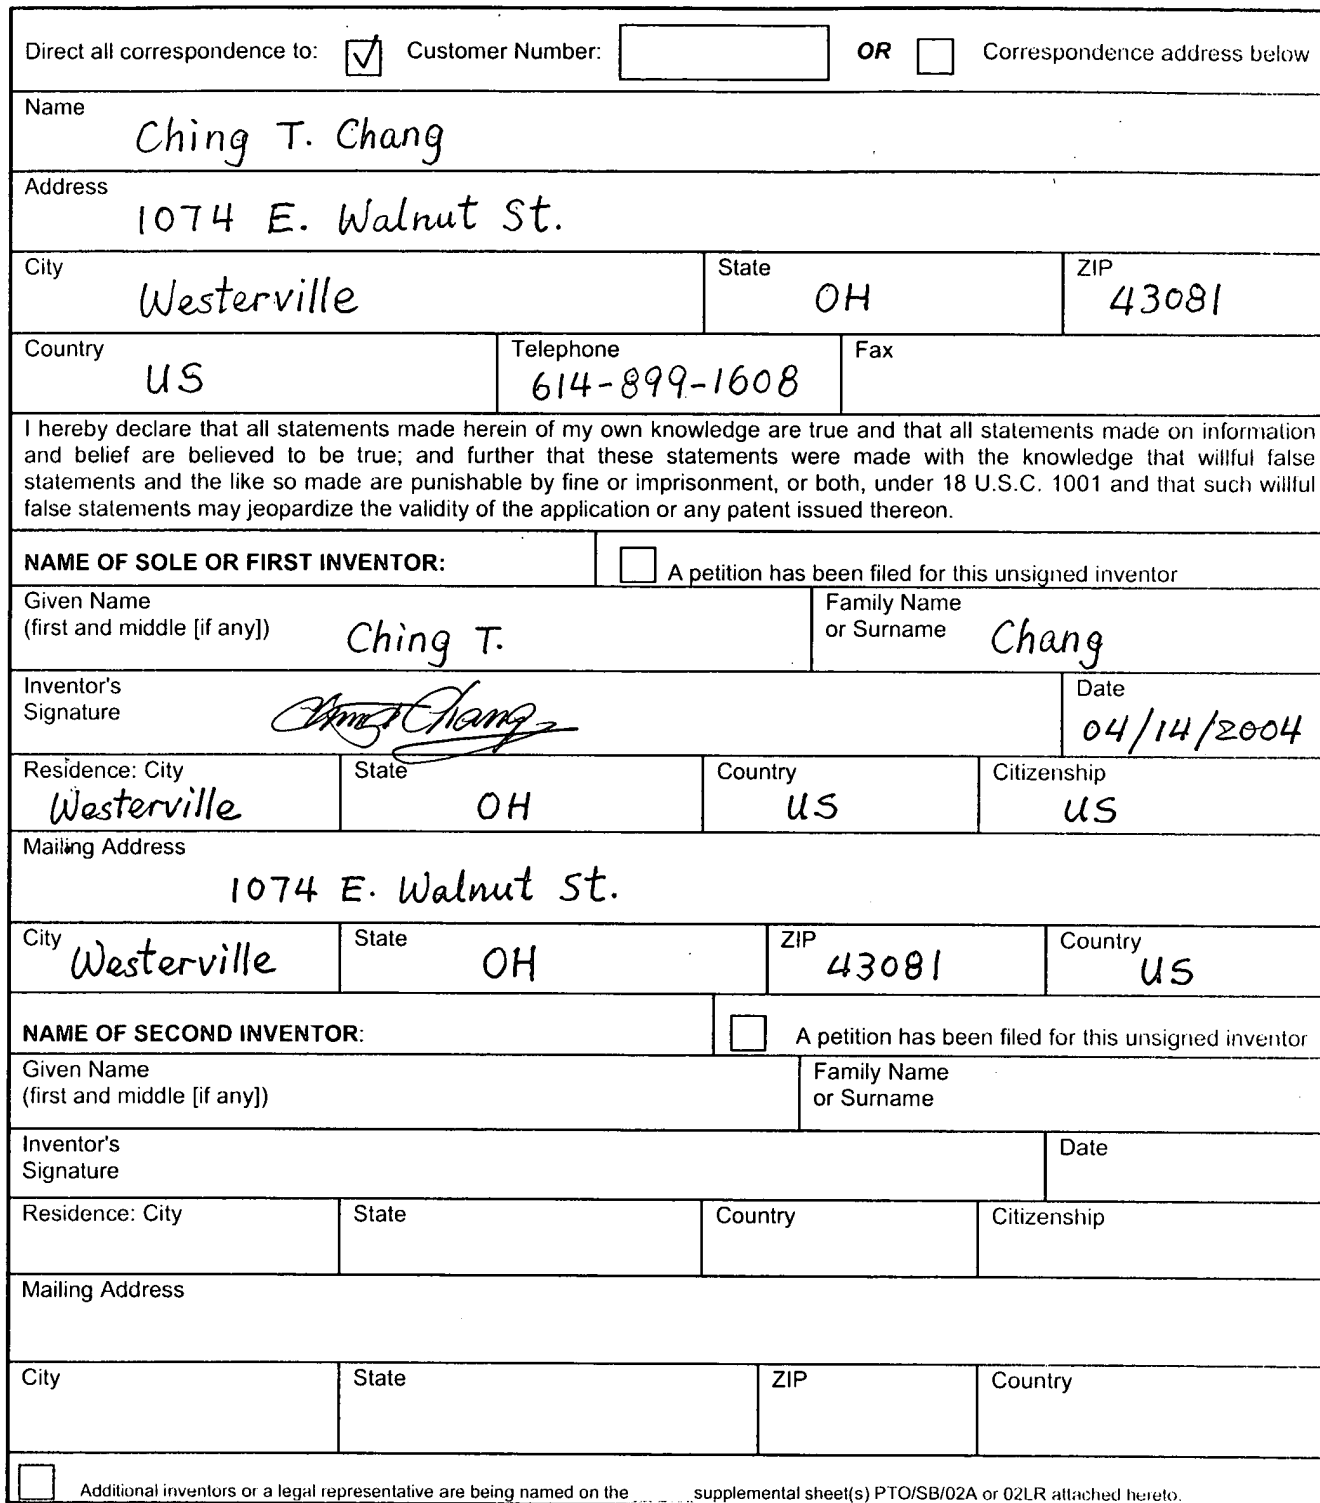 Direct all correspondence to: ☑ Customer Number: OR ☐ Correspondence address below
Name
Ching T. Chang
Address
1074 E. Walnut St.
City State ZIP
Westerville OH 43081
Country Telephone Fax
US 614-899-1608
I hereby declare that all statements made herein of my own knowledge are true and that all statements made on information
and belief are believed to be true; and further that these statements were made with the knowledge that willful false
statements and the like so made are punishable by fine or imprisonment, or both, under 18 U.S.C. 1001 and that such willful
false statements may jeopardize the validity of the application or any patent issued thereon.
NAME OF SOLE OR FIRST INVENTOR: ☐ A petition has been filed for this unsigned inventor
Given Name Family Name
(first and middle [if any]) Ching T. or Surname Chang
Inventor's Date
Signature Ching T Chang 04/14/2004
Residence: City State Country Citizenship
Westerville OH US US
Mailing Address
1074 E. Walnut St.
City State ZIP Country
Westerville OH 43081 US
NAME OF SECOND INVENTOR: ☐ A petition has been filed for this unsigned inventor
Given Name Family Name
(first and middle [if any]) or Surname
Inventor's Date
Signature
Residence: City State Country Citizenship
Mailing Address
City State ZIP Country
☐ Additional inventors or a legal representative are being named on the ____ supplemental sheet(s) PTO/SB/02A or 02LR attached hereto.